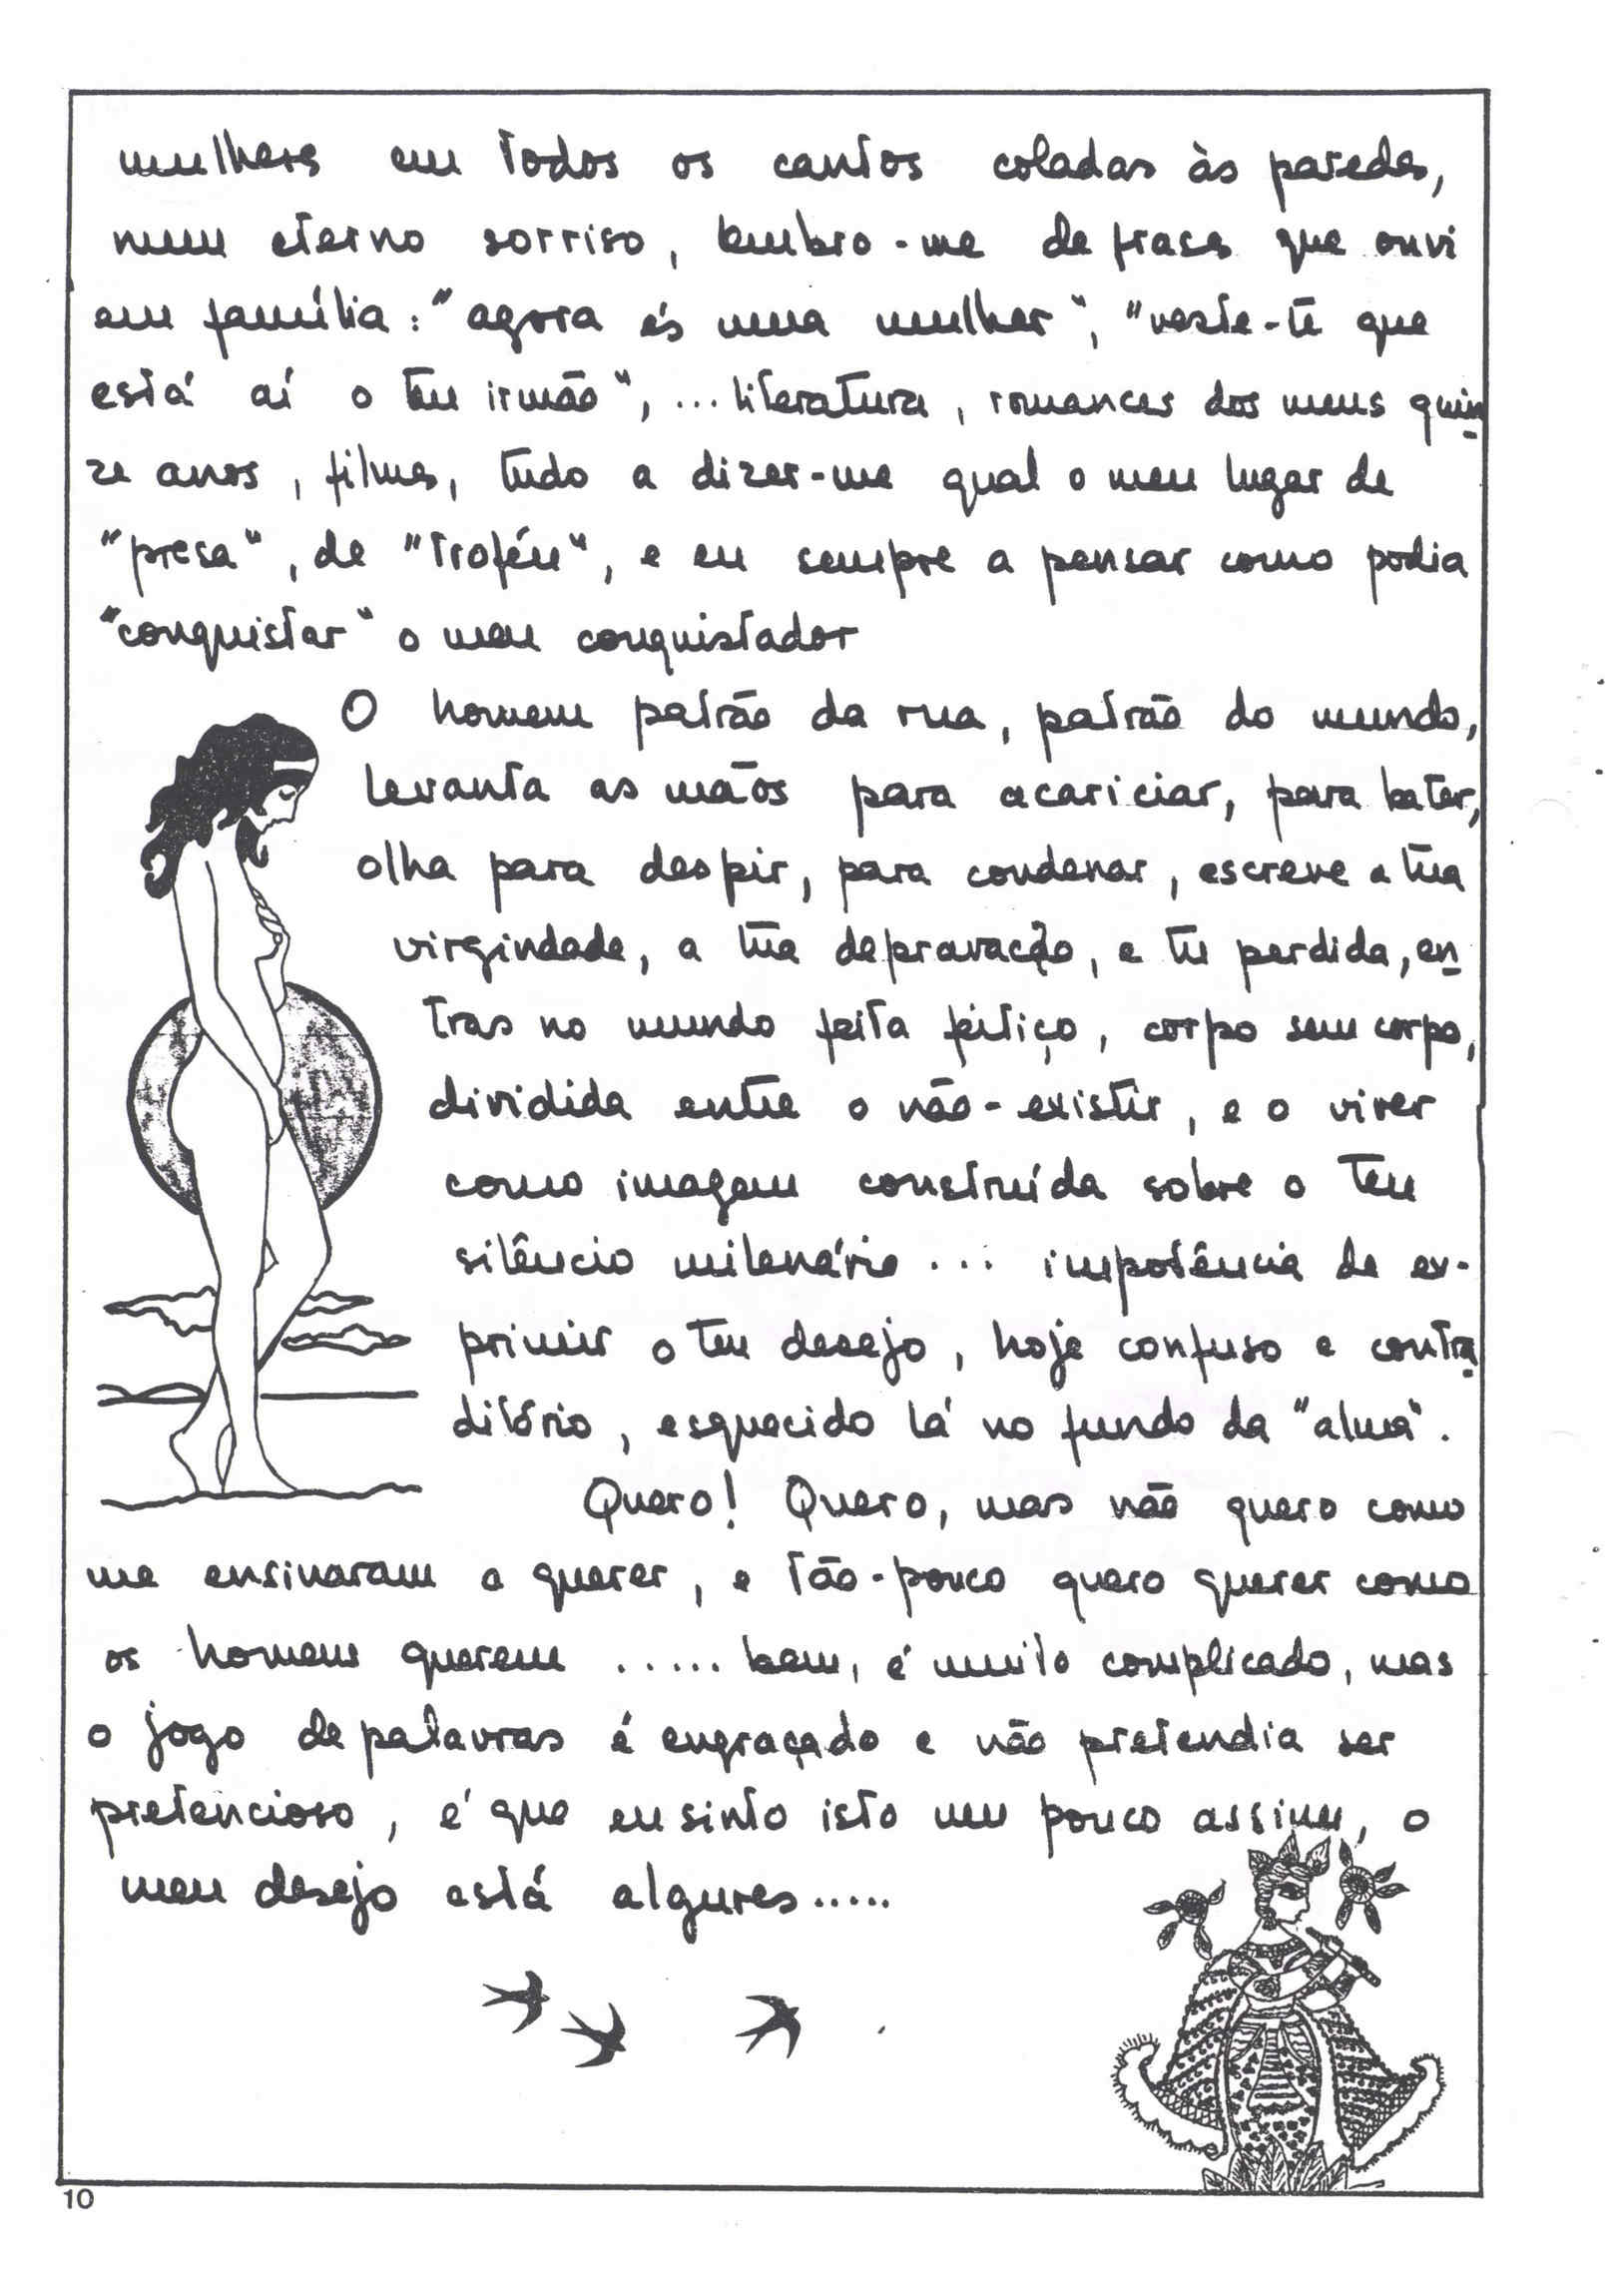 mulheres em todos os cantos coladas às paredes,
num eterno sorriso, lembro-me de frases que ouvi
em família: "agora és uma mulher", "veste-te que
está aí o teu irmão", ... literatura, romances dos meus quin
ze anos, filmes, tudo a dizer-me qual o meu lugar de
"presa", de "troféu", e eu sempre a pensar como podia
"conquistar" o meu conquistador
O homem patrão da rua, patrão do mundo,
levanta as mãos para acariciar, para bater,
olha para despir, para condenar, escreve a tua
virgindade, a tua depravação, e tu perdida, en
tras no mundo feita feitiço, corpo sem corpo,
dividida entre o não-existir, e o viver
como imagem construída sobre o teu
silêncio milenário ... impotência de ex-
primir o teu desejo, hoje confuso e contra
ditório, esquecido lá no fundo da "alma".
Quero! Quero, mas não quero como
me ensinaram a querer, e tão-pouco quero querer como
os homens querem ..... bem, é muito complicado, mas
o jogo de palavras é engraçado e não pretendia ser
pretencioso, é que eu sinto isto um pouco assim, o
meu desejo está algures.....
10